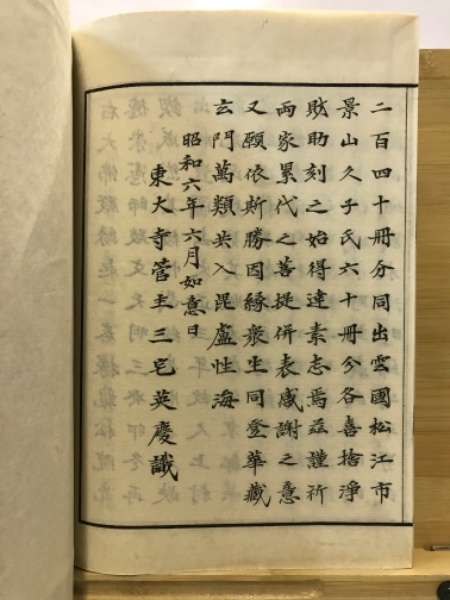 二百四十冊分同出雲國松江市
景山久子氏六十冊分各喜捨淨
財助刻之始得達素志焉茲謹祈
兩家累代之菩提併表感謝之意
又願依斯勝因緣衆生同登華藏
玄門萬類共入毘盧性海
昭和六年六月如意日
東大寺菅主三宅英慶識